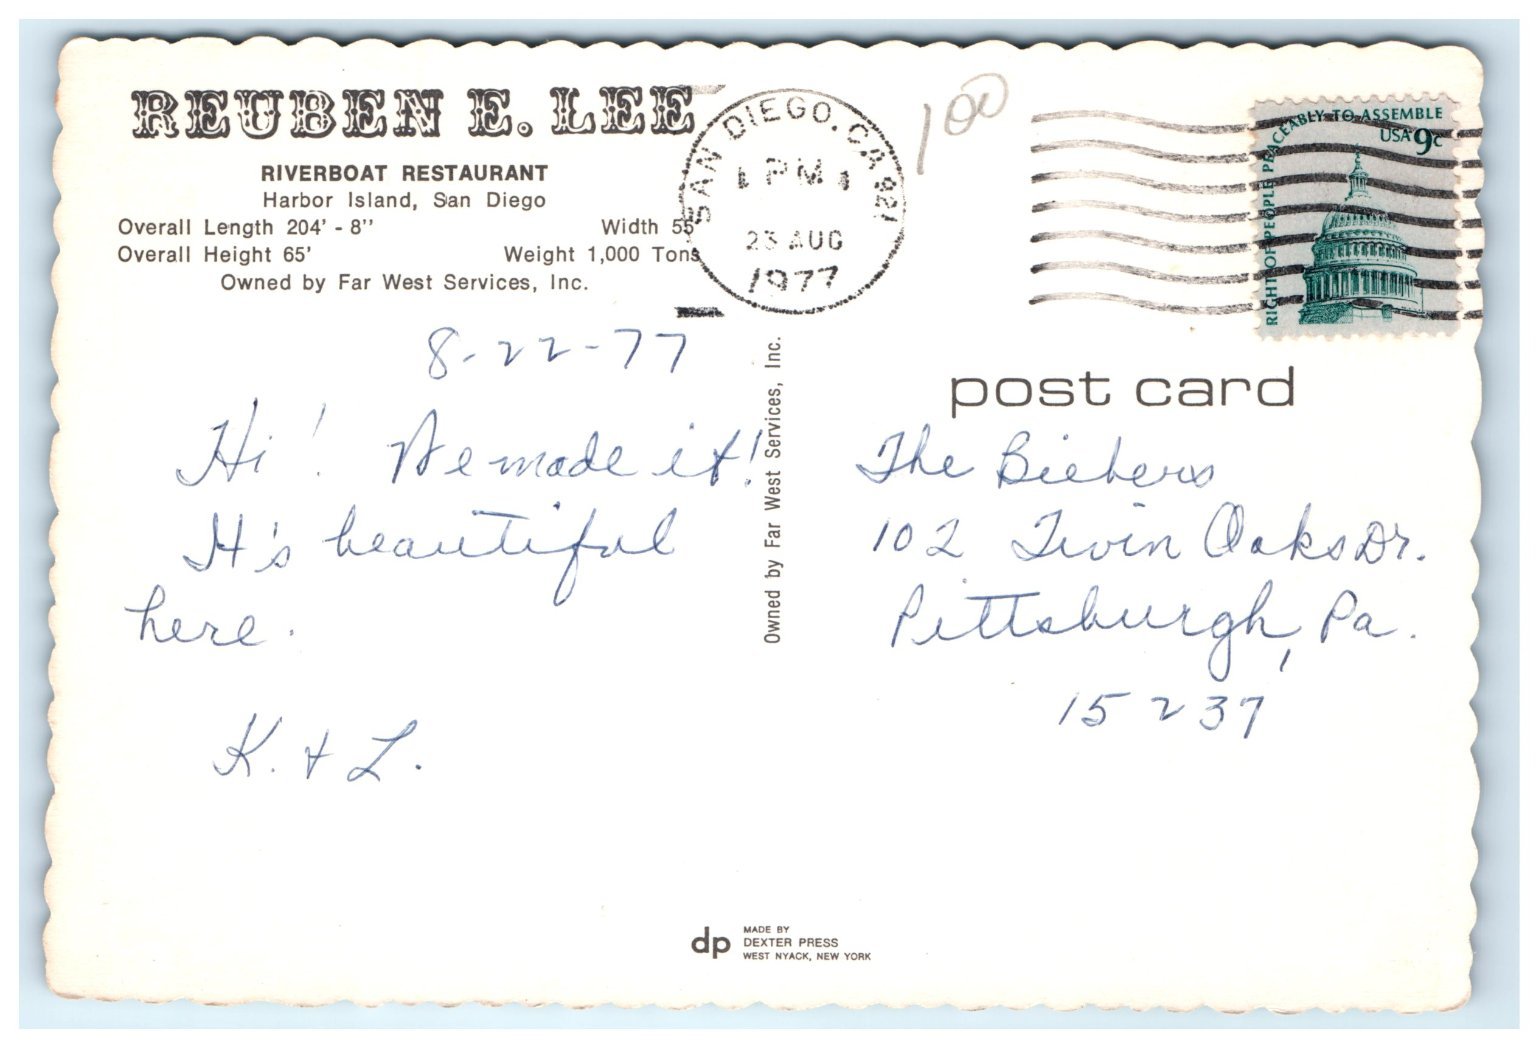 REUBEN E. LEE
RIVERBOAT RESTAURANT
Harbor Island, San Diego
Overall Length 204' - 8'' Width 55'
Overall Height 65' Weight 1,000 Tons
Owned by Far West Services, Inc.
SAN DIEGO, CA 921
PM
23 AUG
1977
100
RIGHT OF PEOPLE PEACEABLY TO ASSEMBLE
USA 9c
8-22-77
Hi! We made it!
It's beautiful
here.
K. & L.
Owned by Far West Services, Inc.
post card
The Biebers
102 Twin Oaks Dr.
Pittsburgh, Pa.
15237
dp
MADE BY
DEXTER PRESS
WEST NYACK, NEW YORK